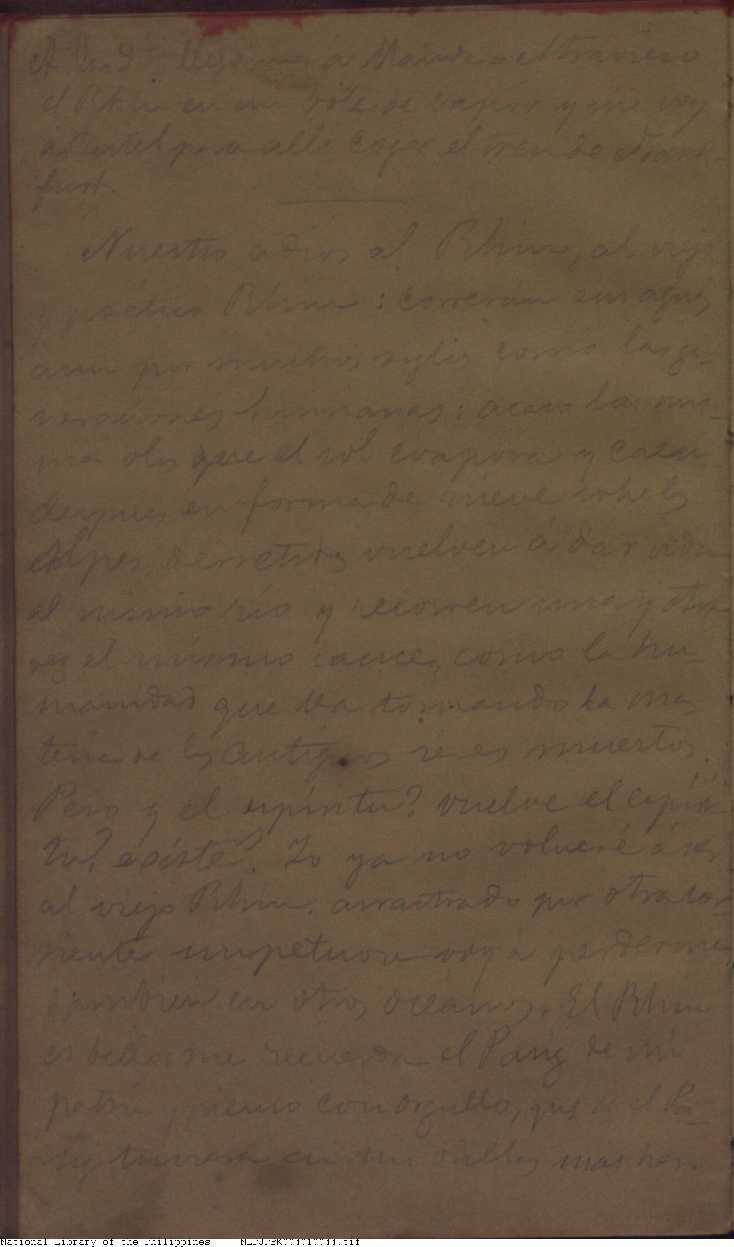 A las 9 llegamos á Mainz atravieso
el Rhin en un bote de vapor y me voy
á Castel para alli coger el tren de Frank-
furt.
Nuestro adios al Rhin, al viejo
y poético Rhin: correrán sus aguas
aun por muchos siglos como las ge-
neraciones humanas; acaso las mis-
mas olas que el sol evapora y caen
despues en forma de nieve sobre los
Alpes, derretidas vuelven á dar vida
al mismo río y recorren una y otra
vez el mismo cauce, como la hu-
manidad que va tomando la ma-
teria de los antiguos seres muertos.
Pero y el espíritu? vuelve el espíri-
tu? existe? Yo ya no volveré á ver
al viejo Rhin: arrastrado por otra cor-
riente impetuosa voy á perderme
tambien en otros oceanos. El Rhin
es bello: me recuerda el Pasig de mi
patria y pienso con orgullo, que si el Pa-
sig tuviera en sus orillas mas